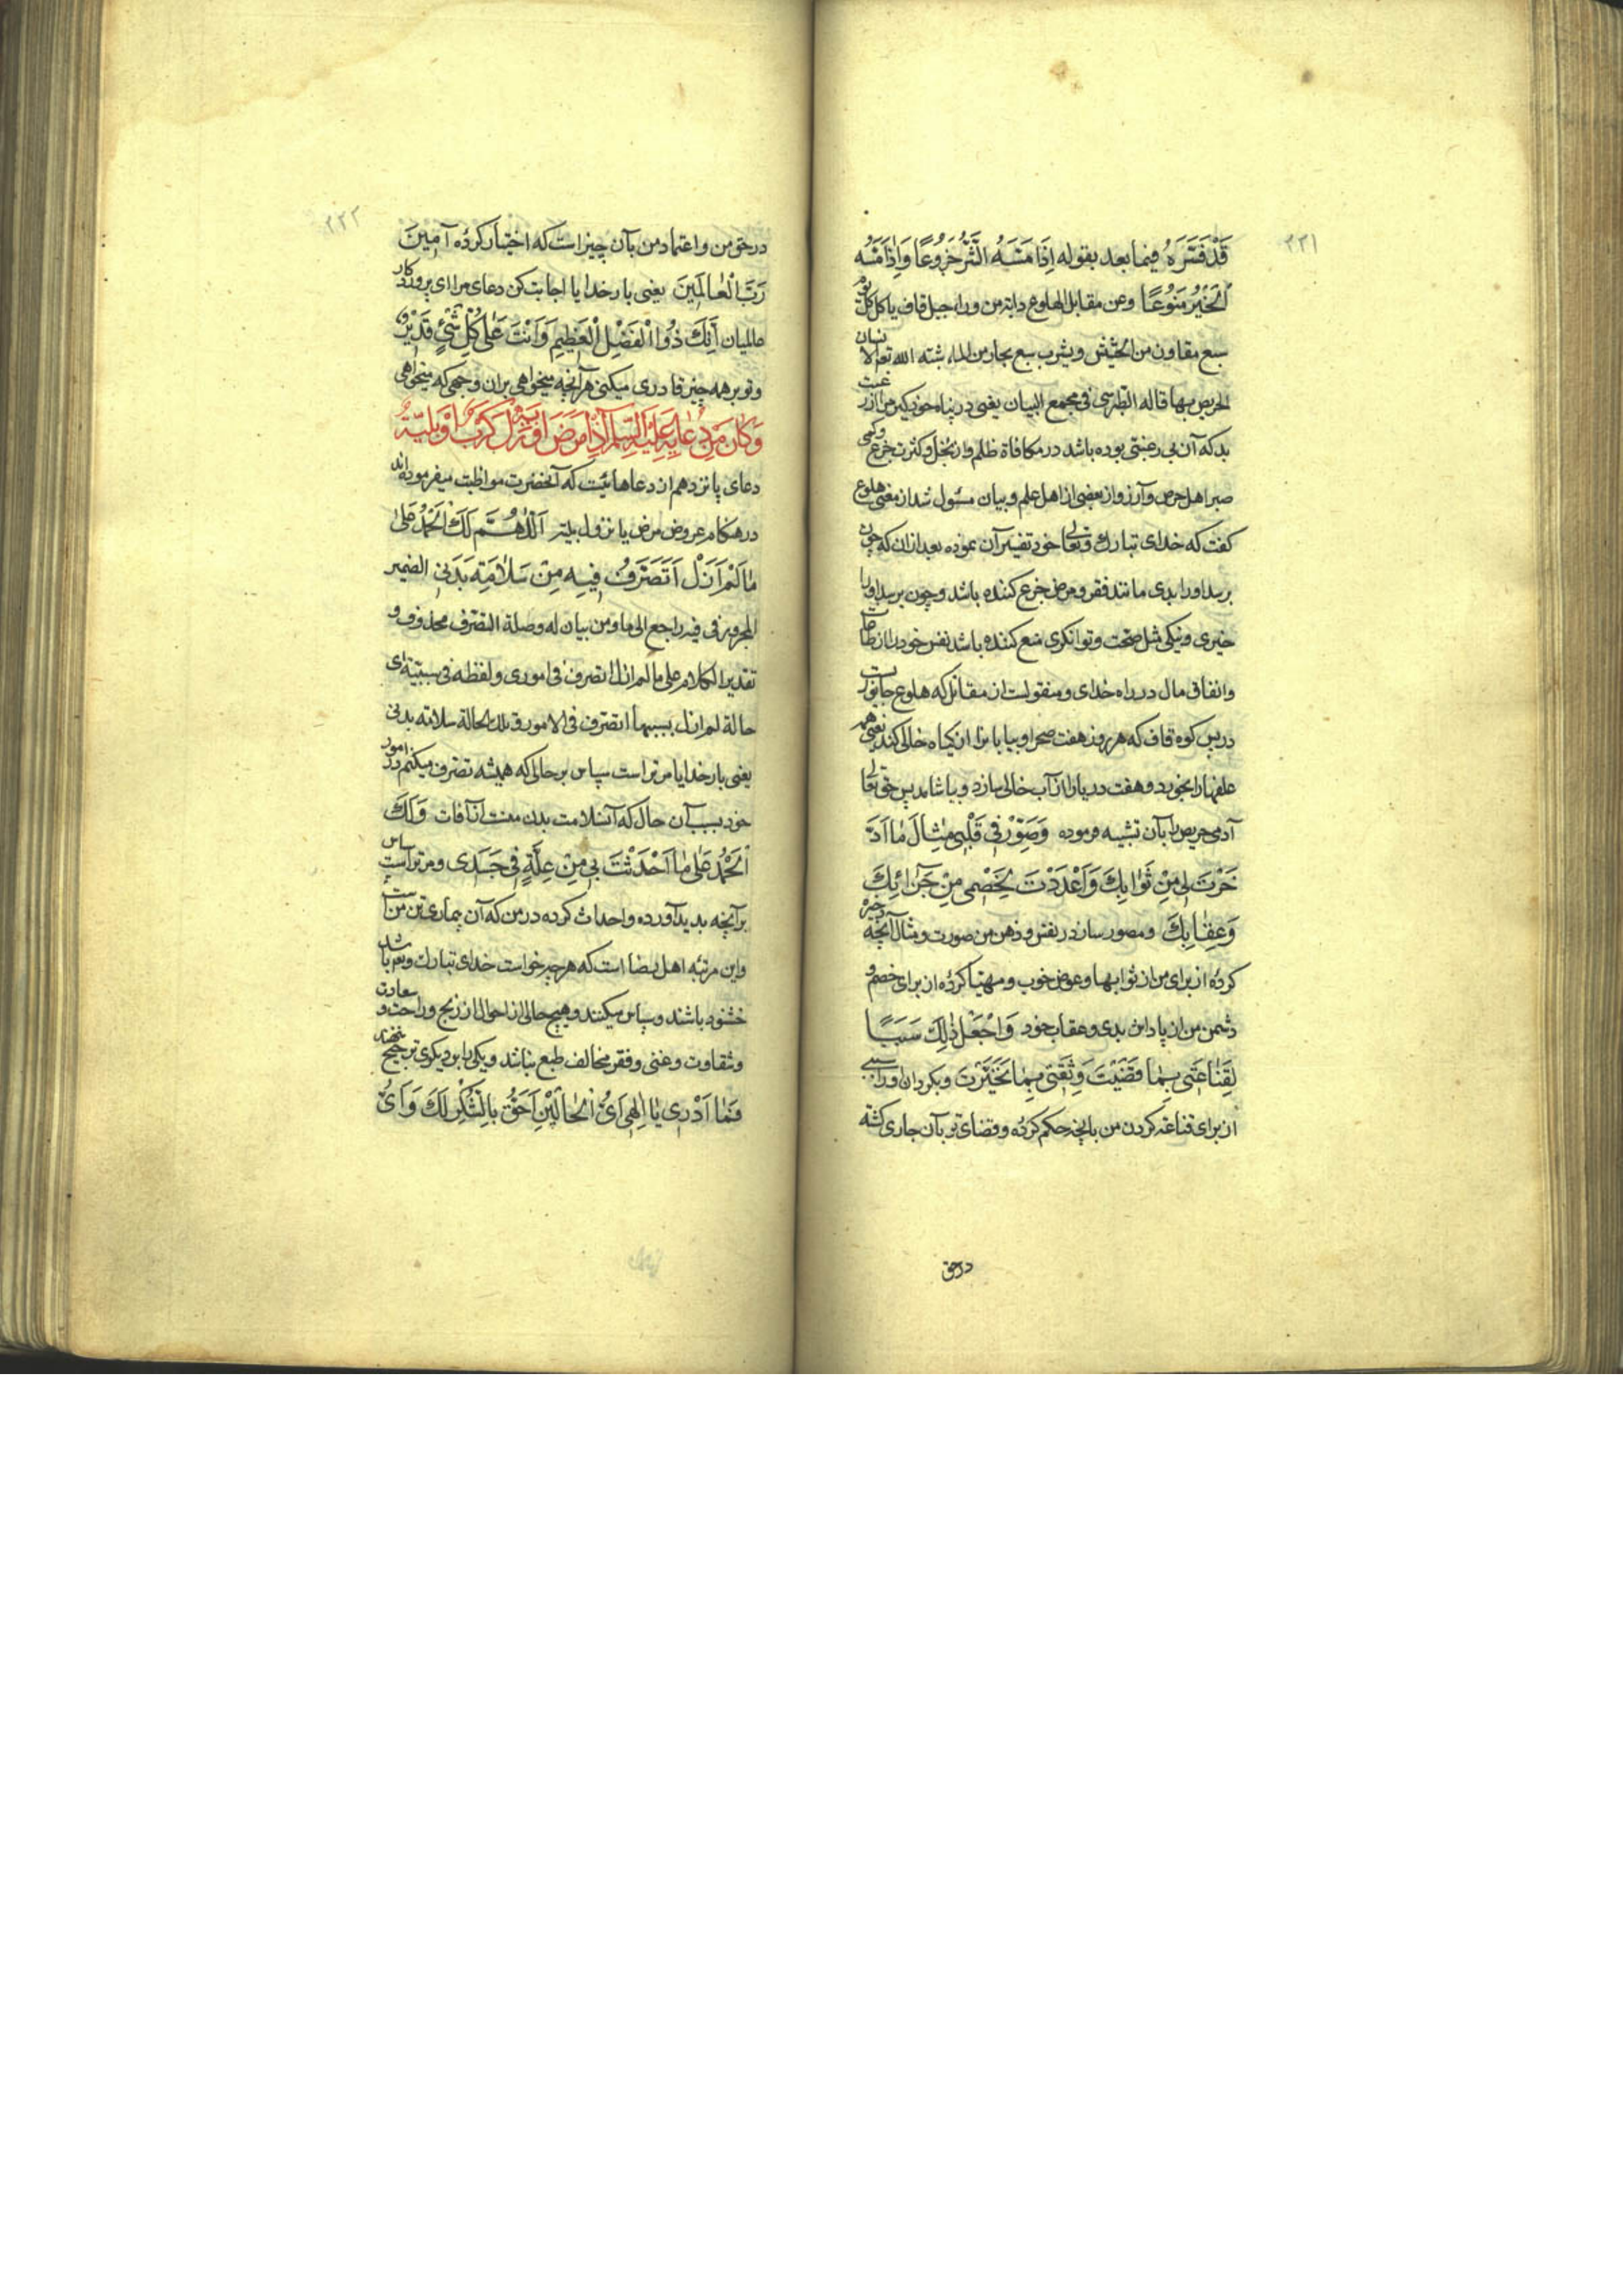 ۲۲۱
قَدْ فَسَّرَهُ فيما بعد بقوله اِذَا مَسَّهُ الشَّرُّ جَزُوعًا وَاِذَا مَسَّهُ
الْخَيْرُ مَنُوعًا وعن مقاتل الهلوع دابة من وراء جبل قاف ياكل كل يوم
سبع مقاون من الحشيش ويشرب سبع بحار من الماء شبّه الله تعم الانسان
الحريص بها قاله الطبرسى فى مجمع البيان يعنى در پناه خود گير مرا از رغبت
بد كه آن بى رغبتى بوده باشد در مكافاة ظلم و از بخل و كثرت جزع و كمى
صبر اهل حرص و آرزو از بعضى از اهل علم و بيان مسئول شد از معنى هلوع
گفت كه خداى تبارك وتعالى خود تفسير آن نموده بعد از ان كه چون
برسد او را بدى مانند فقر و مرض جزع كننده باشد و چون برسد او را
خيرى و نيكى مثل صحت و توانگرى منع كننده باشد نفس خود را از طاعات
وانفاق مال در راه خداى و منقولست از مقاتل كه هلوع جانوريست
در پس كوه قاف كه هر روز هفت صحرا و بيابانرا از گياه خالى كند يعنى همه
علفها را بخورد و هفت دريا را از آب خالى سازد و بياشامد پس حق تعالى
آدمى حريص را بآن تشبيه فرموده وَصَوِّرْ فِى قَلْبِى مِثَالَ مَا ادَّ
خَرْتَ لِى مِنْ ثَوَابِكَ وَاَعْدَدْتَ لِخَصْمِى مِنْ جَزَائِكَ
وَعِقَابِكَ ومصور ساز در نفس و ذهن من صورت و مثال آنچه ذخيره
كردهٔ از براى من از ثوابها و عوض خوب و مهيّا كردهٔ از براى خصم و
دشمن من از پاداش بدى و عقاب خود وَاجْعَلْ ذٰلِكَ سَبَبًا
لِقَنَاعَتِى بِمَا قَضَيْتَ وَثِقَتِى بِمَا تَخَيَّرْتَ وبگردان او را سببى
از براى قناعة كردن من بانچه حكم كردهٔ و قضاى تو بآن جارى گشته
در حق
۲۲۲
در حق من و اعتماد من بآن چيز است كه اختيار كردهٔ آمِينَ
رَبَّ الْعَالَمِينَ يعنى بار خدايا اجابت كن دعاى مرا اى پروردكار
عالميان اِنَّكَ ذُو الْفَضْلِ الْعَظِيمِ وَاَنْتَ عَلٰى كُلِّ شَىْءٍ قَدِيْرٌ
وتو بر همه چيز قادرى ميكنى هر آنچه ميخواهى بران وجهى كه ميخواهى
وَكَانَ مِنْ دُعَائِهِ عَلَيْهِ السَّلَم اِذَا مَرِضَ اَوْ نَزَلَ بِهِ كَرْبٌ اَوْ بَلِيَّةٌ
دعاى پانزدهم از دعاهائيست كه آنحضرت مواظبت ميفرموده‌اند
در هنكام عروض مرض يا نزول بليّه اَللّٰهُمَّ لَكَ الْحَمْدُ عَلٰى
مَا لَمْ اَزَلْ اَتَصَرَّفُ فِيهِ مِنْ سَلَامَةِ بَدَنِى الضمير
المجرور فى فيه راجع الى ما ومن بيان له وصلة التصرف محذوف و
تقدير الكلام على ما لم ازل اتصرف فى امورى ولفظه فى سببيّة اى
حالة لم ازل بسببها اتصرف فى الامور وتلك الحالة سلامة بدنى
يعنى بار خدايا مر تراست سپاس بر حالى كه هميشه تصرف ميكنم در امور
خود بسبب آن حال كه آن سلامت بدن منست از آفات وَلَكَ
الْحَمْدُ عَلٰى مَا اَحْدَثْتَ بِى مِنْ عِلَّةٍ فِى جَسَدِى ومر تراست سپاس
بر آنچه پديد آورده و احداث كرده در من كه آن بيمارى تن من است
واين مرتبه اهل رضا است كه هر چه خواست خداى تبارك وتعم باشد
خشنود باشند و سپاس ميكنند و هيچ حالى از احوال از رنج و راحت و سعادت
وشقاوت و غنى و فقر مخالف طبع نباشد و يكى را بر ديكرى ترجيح ننهند
فَمَا اَدْرِى يَا اِلٰهِى اَىُّ الْحَالَيْنِ اَحَقُّ بِالشُّكْرِ لَكَ وَاَىُّ